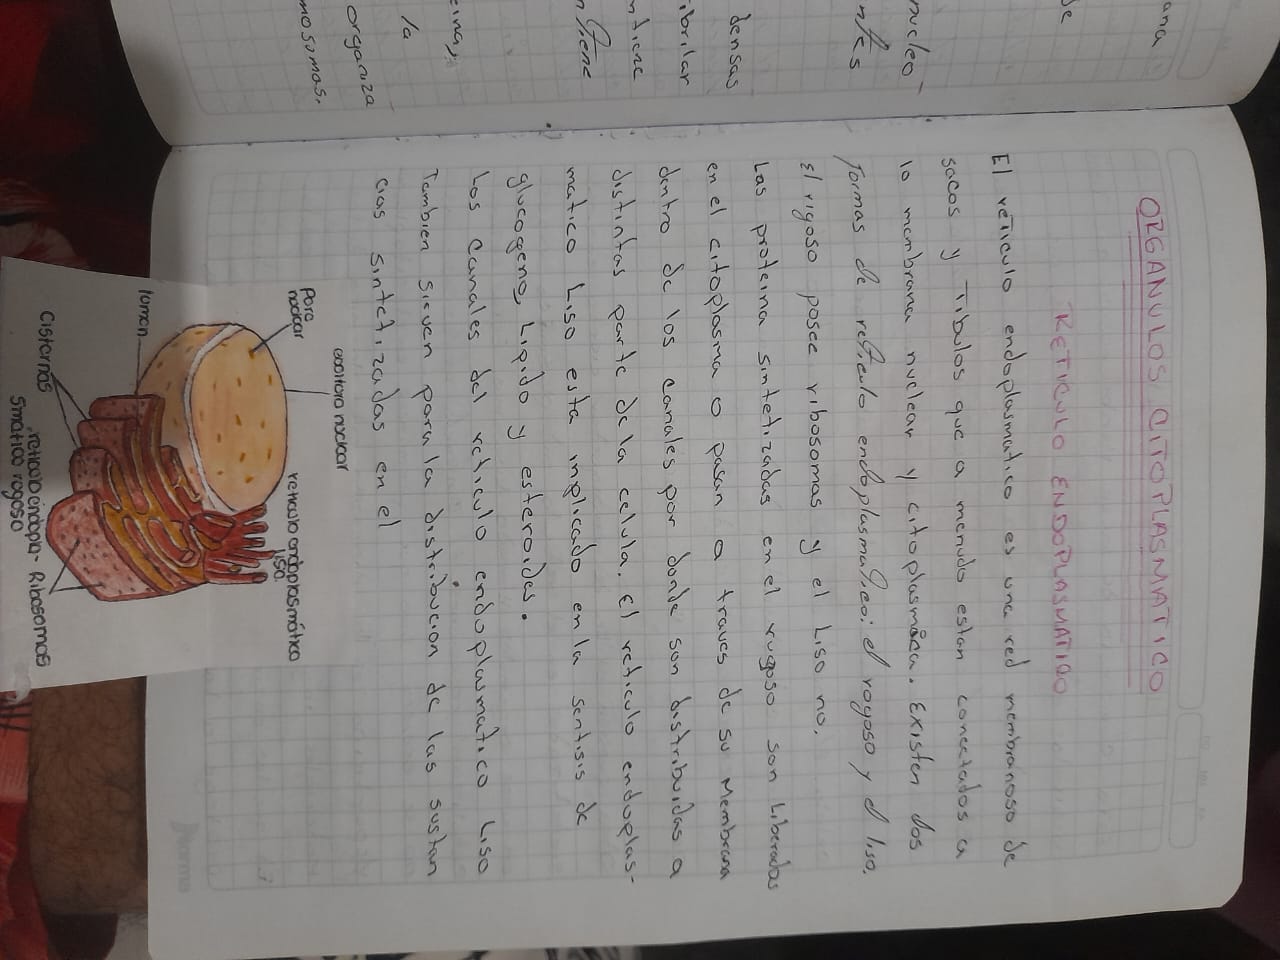 ORGANULOS CITOPLASMATICO
RETICULO ENDOPLASMATICO
El reticulo endoplasmatico es una red membranoso de
sacos y Tubulos que a menudo estan conectados a
la membrana nuclear y citoplasmáca. Existen dos
formas de reticulo endoplasmatico: el rogoso y el liso.
El rigoso posee ribosomas y el Liso no.
Las proteina sintetizadas en el rugoso son Liberadas
en el citoplasma o pasan a traves de su Membrana
dentro de los canales por donde son distribuidas a
distintas parte de la celula. El reticulo endoplas-
matico Liso esta implicado en la sentisis de
glucogeno, Lipido y esteroides.
Los Canales del reticulo endoplasmatico Liso
Tambien sieven para la distribucion de las sustan
cias sintetizadas en el
poro
nuclear
reticulo endoplasmático
liso
lumen
cisternas
reticulo endopla-
smático rogoso
Ribosomas
ana
de
nucleo
densas
ibrilar
ntiene
ntiene
eina,
la
organiza
mosomas.